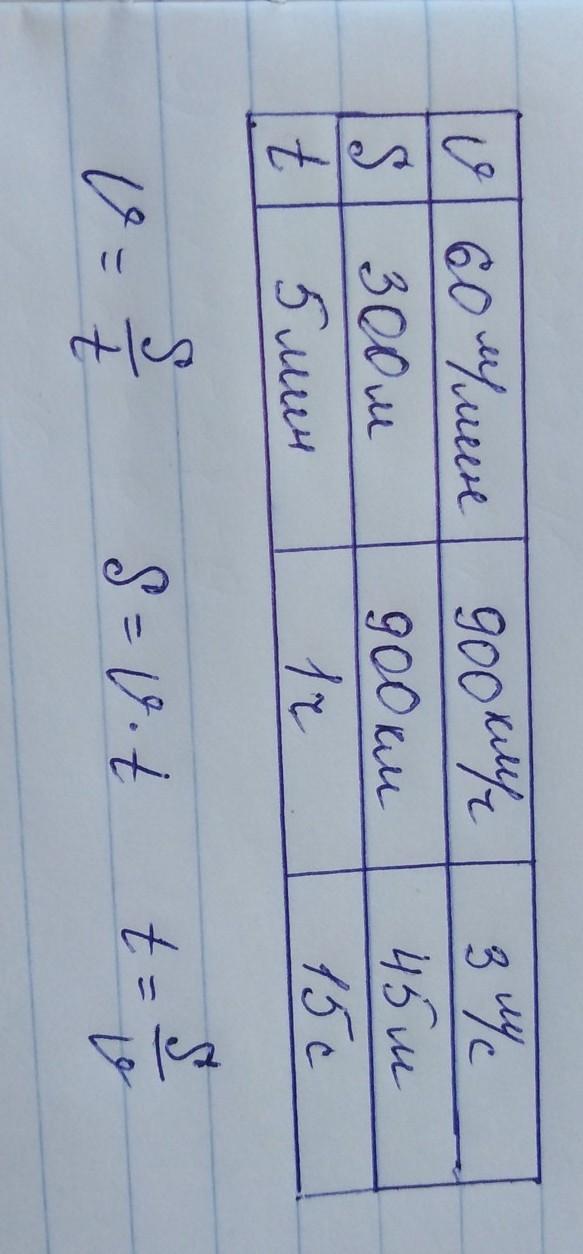 v 60 м/мин 900 км/ч 3 м/с
S 300 м 900 км 45 м
t 5 мин 1 ч 15 с
v = S/t S = v · t t = S/v